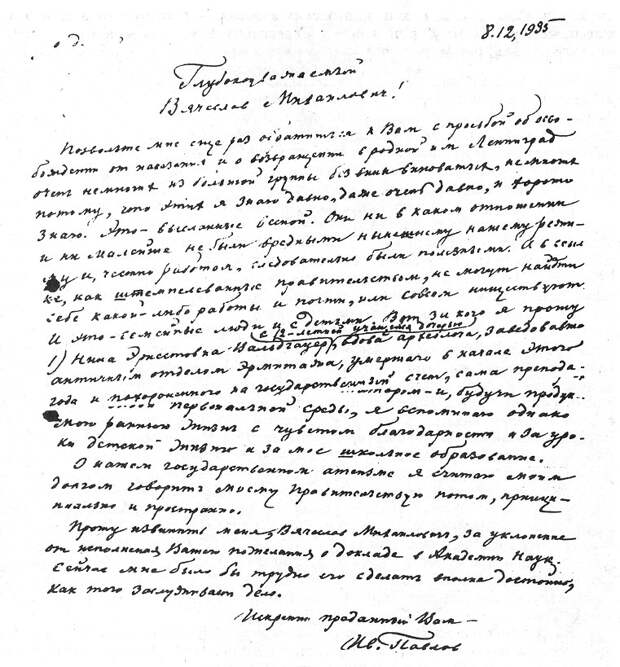 8.12,1935
Глубокоуважаемый
Вячеслав Михайлович!
Позвольте мне еще раз обратиться к Вам с просьбой об осво-
бождении от наказания и о возвращении в родной им Ленинград
очень немногих из большой группы без вины виноватых, немногих
потому, что этих я знаю давно, даже очень давно, и хорошо
знаю. Это – высланные весной. Они ни в каком отношении
и ни малейше не были вредными нынешнему нашему режи-
му и, честно работая, следовательно были полезными. А в ссыл
ке, как штемпелеванные правительством, не могут найти
себе какой-либо работы и почти, или совсем нищенствуют.
И это – семейные люди и с детьми. Вот за кого я прошу
с 12-летней учащейся дочерью
1) Нина Эрнестовна Вальдгауер, вдова археолога, заведовавшего
античным отделом Эрмитажа, умершего в начале этого
года и похороненного на государственный счет, сама препода-
первоначальной среды, я вспоминаю однако
мою раннюю жизнь с чувством благодарности и за уро-
ки детской жизни и за мое школьное образование.
О нашем государственном атеизме я считаю моим
долгом говорить моему Правительству потом, принци-
пиально и пространно.
Прошу извинить меня, Вячеслав Михайлович, за уклонение
от исполнения Вашего пожелания о докладе в Академии Наук.
Сейчас мне было бы трудно его сделать вполне достойно,
как того заслуживает дело.
Искренно преданный Вам –
Ив. Павлов